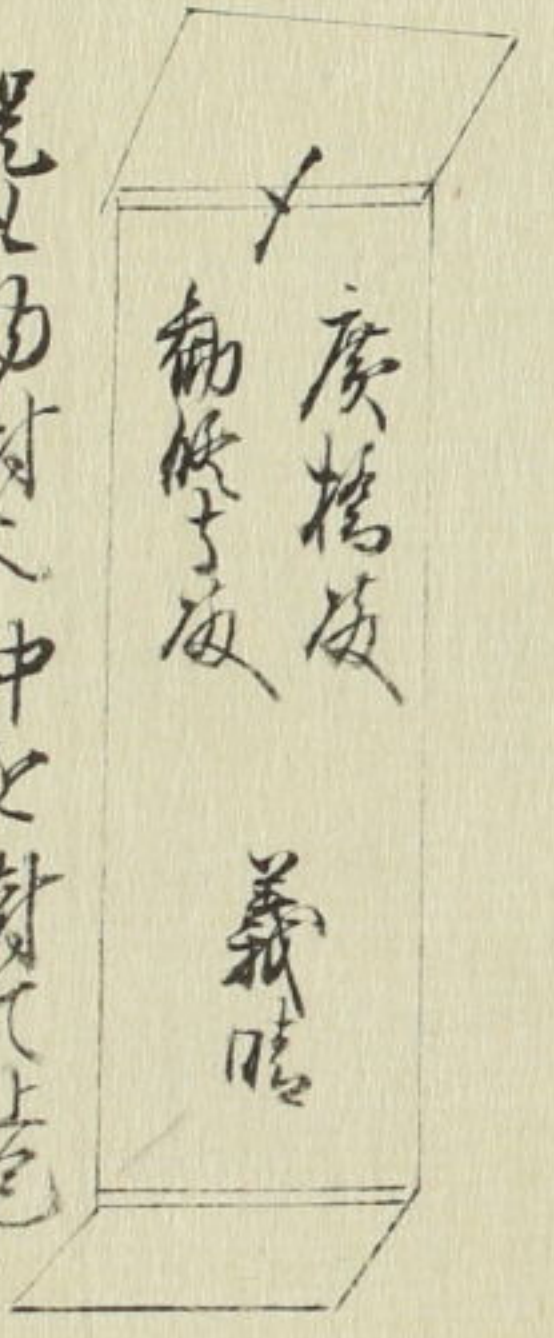 〆
廣橋殿
勧修寺殿
義晴
封之中を封て上包